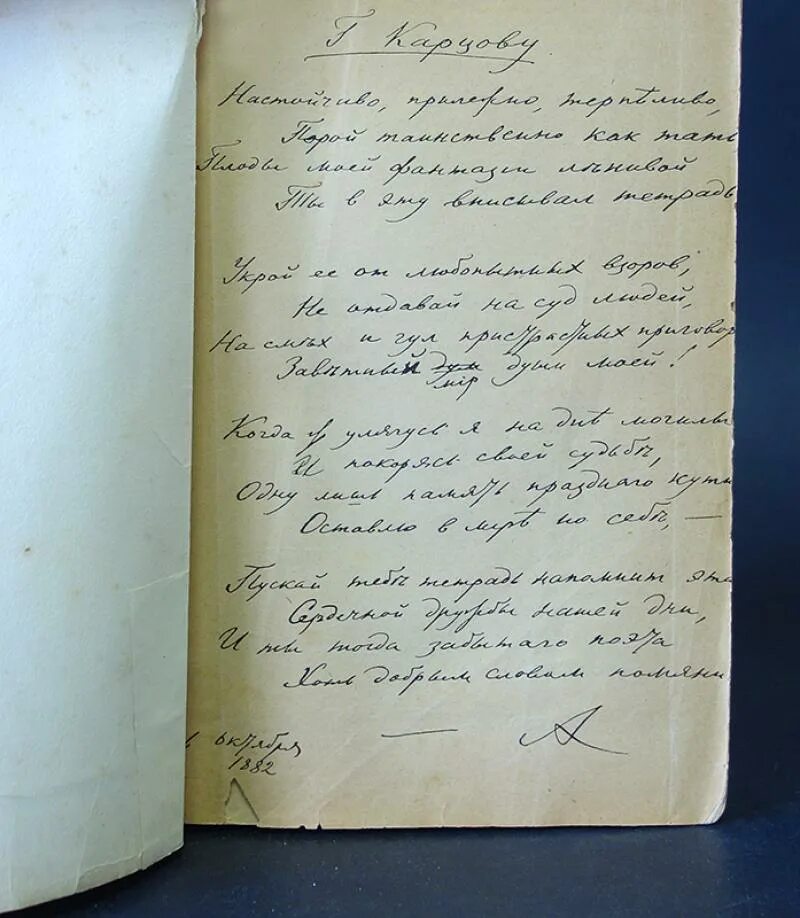 Г Карцову
Настойчиво, прилежно, терпѣливо,
Порой таинственно как тать
Плоды моей фантазіи лѣнивой
Ты в эту вписывал тетрадь
Укрой ее от любопытных взоров,
Не отдавай на суд людей,
На смѣх и гул пристрастных приговор
Завѣтный мір души моей!
Когда улягусь я на днѣ могилы
И покорясь своей судьбѣ,
Одну лишь память праздного кутилы
Оставлю в мірѣ по себѣ, —
Пускай тебѣ тетрадь напомнит эта
Сердечной дружбы нашей дни,
И ты тогда забытаго поэта
Хоть добрым словом помяни
— А
октября
1882